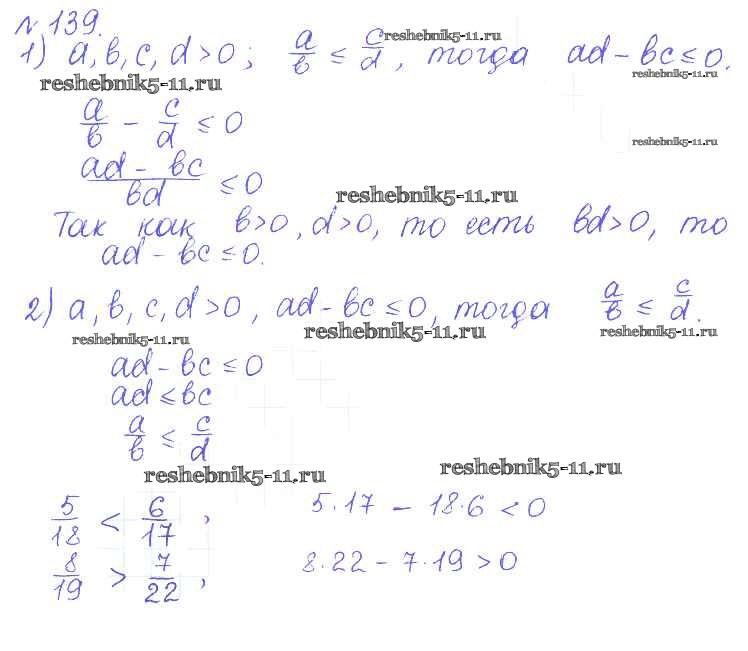 № 139.
1) a, b, c, d > 0; a/b ≤ c/d, тогда ad - bc ≤ 0.
reshebnik5-11.ru
reshebnik5-11.ru
reshebnik5-11.ru
a/b - c/d ≤ 0
reshebnik5-11.ru
(ad - bc)/bd ≤ 0
reshebnik5-11.ru
Так как b > 0, d > 0, то есть bd > 0, то
ad - bc ≤ 0.
2) a, b, c, d > 0, ad - bc ≤ 0, тогда a/b ≤ c/d.
reshebnik5-11.ru
reshebnik5-11.ru
reshebnik5-11.ru
ad - bc ≤ 0
ad ≤ bc
a/b ≤ c/d
reshebnik5-11.ru
reshebnik5-11.ru
5/18 < 6/17, 5·17 - 18·6 < 0
8/19 > 7/22, 8·22 - 7·19 > 0